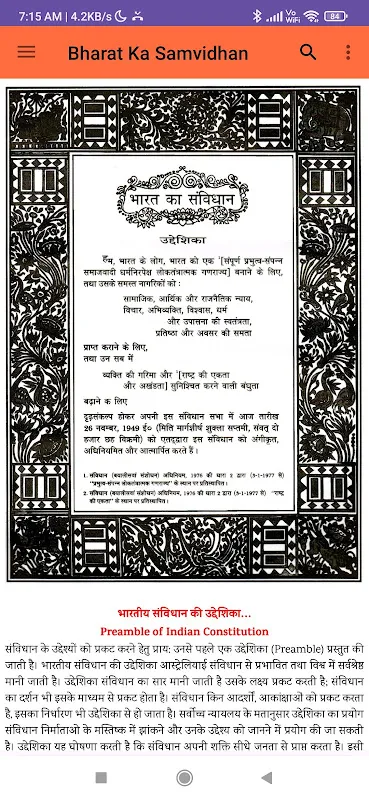 7:15 AM | 4.2KB/s
Vo
WiFi
84
Bharat Ka Samvidhan
भारत का संविधान
उद्देशिका
हम, भारत के लोग, भारत को एक ¹[संपूर्ण प्रभुत्व-संपन्न
समाजवादी धर्मनिरपेक्ष लोकतंत्रात्मक गणराज्य] बनाने के लिए,
तथा उसके समस्त नागरिकों को :
सामाजिक, आर्थिक और राजनैतिक न्याय,
विचार, अभिव्यक्ति, विश्वास, धर्म
और उपासना की स्वतंत्रता,
प्रतिष्ठा और अवसर की समता
प्राप्त कराने के लिए,
तथा उन सब में
व्यक्ति की गरिमा और ²[राष्ट्र की एकता
और अखंडता] सुनिश्चित करने वाली बंधुता
बढ़ाने के लिए
दृढ़संकल्प होकर अपनी इस संविधान सभा में आज तारीख
26 नवम्बर, 1949 ई० (मिति मार्गशीर्ष शुक्ला सप्तमी, संवत् दो
हजार छह विक्रमी) को एतद्द्वारा इस संविधान को अंगीकृत,
अधिनियमित और आत्मार्पित करते हैं।
1. संविधान (बयालीसवां संशोधन) अधिनियम, 1976 की धारा 2 द्वारा (3-1-1977 से)
"प्रभुत्व-संपन्न लोकतंत्रात्मक गणराज्य" के स्थान पर प्रतिस्थापित।
2. संविधान (बयालीसवां संशोधन) अधिनियम, 1976 की धारा 2 द्वारा (3-1-1977 से) "राष्ट्र
की एकता" के स्थान पर प्रतिस्थापित।
भारतीय संविधान की उद्देशिका...
Preamble of Indian Constitution
संविधान के उद्देश्यों को प्रकट करने हेतु प्राय: उनसे पहले एक उद्देशिका (Preamble) प्रस्तुत की
जाती है। भारतीय संविधान की उद्देशिका आस्ट्रेलियाई संविधान से प्रभावित तथा विश्व में सर्वश्रेष्ठ
मानी जाती है। उद्देशिका संविधान का सार मानी जाती है उसके लक्ष्य प्रकट करती है; संविधान
का दर्शन भी इसके माध्यम से प्रकट होता है। संविधान किन आदर्शो, आकांक्षाओं को प्रकट करता
है, इसका निर्धारण भी उद्देशिका से हो जाता है। सर्वोच्च न्यायालय के मतानुसार उद्देशिका का प्रयोग
संविधान निर्माताओ के मस्तिष्क में झांकने और उनके उद्देश्य को जानने में प्रयोग की जा सकती
है। उद्देशिका यह घोषणा करती है कि संविधान अपनी शक्ति सीधे जनता से प्राप्त करता है। इसी